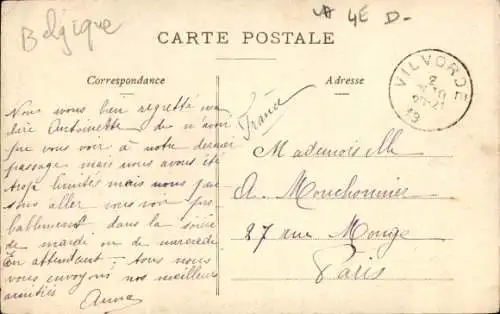 Belgique
4E D-
CARTE POSTALE
Correspondance
Adresse
VILVORDE
2
20-21
13
France
Nous avons bien regretté ma
chère Antoinette de n'avoir
pas vous voir à notre dernier
passage mais nous avons été
trop limités mais nous
aller vous voir pro
bablement dans la soirée
de mardi ou de mercredi
En attendant tous nous
vous envoyons nos meilleurs
amitiés Anna
Mademoiselle
A. Mouchonnier
27 rue Monge
Paris